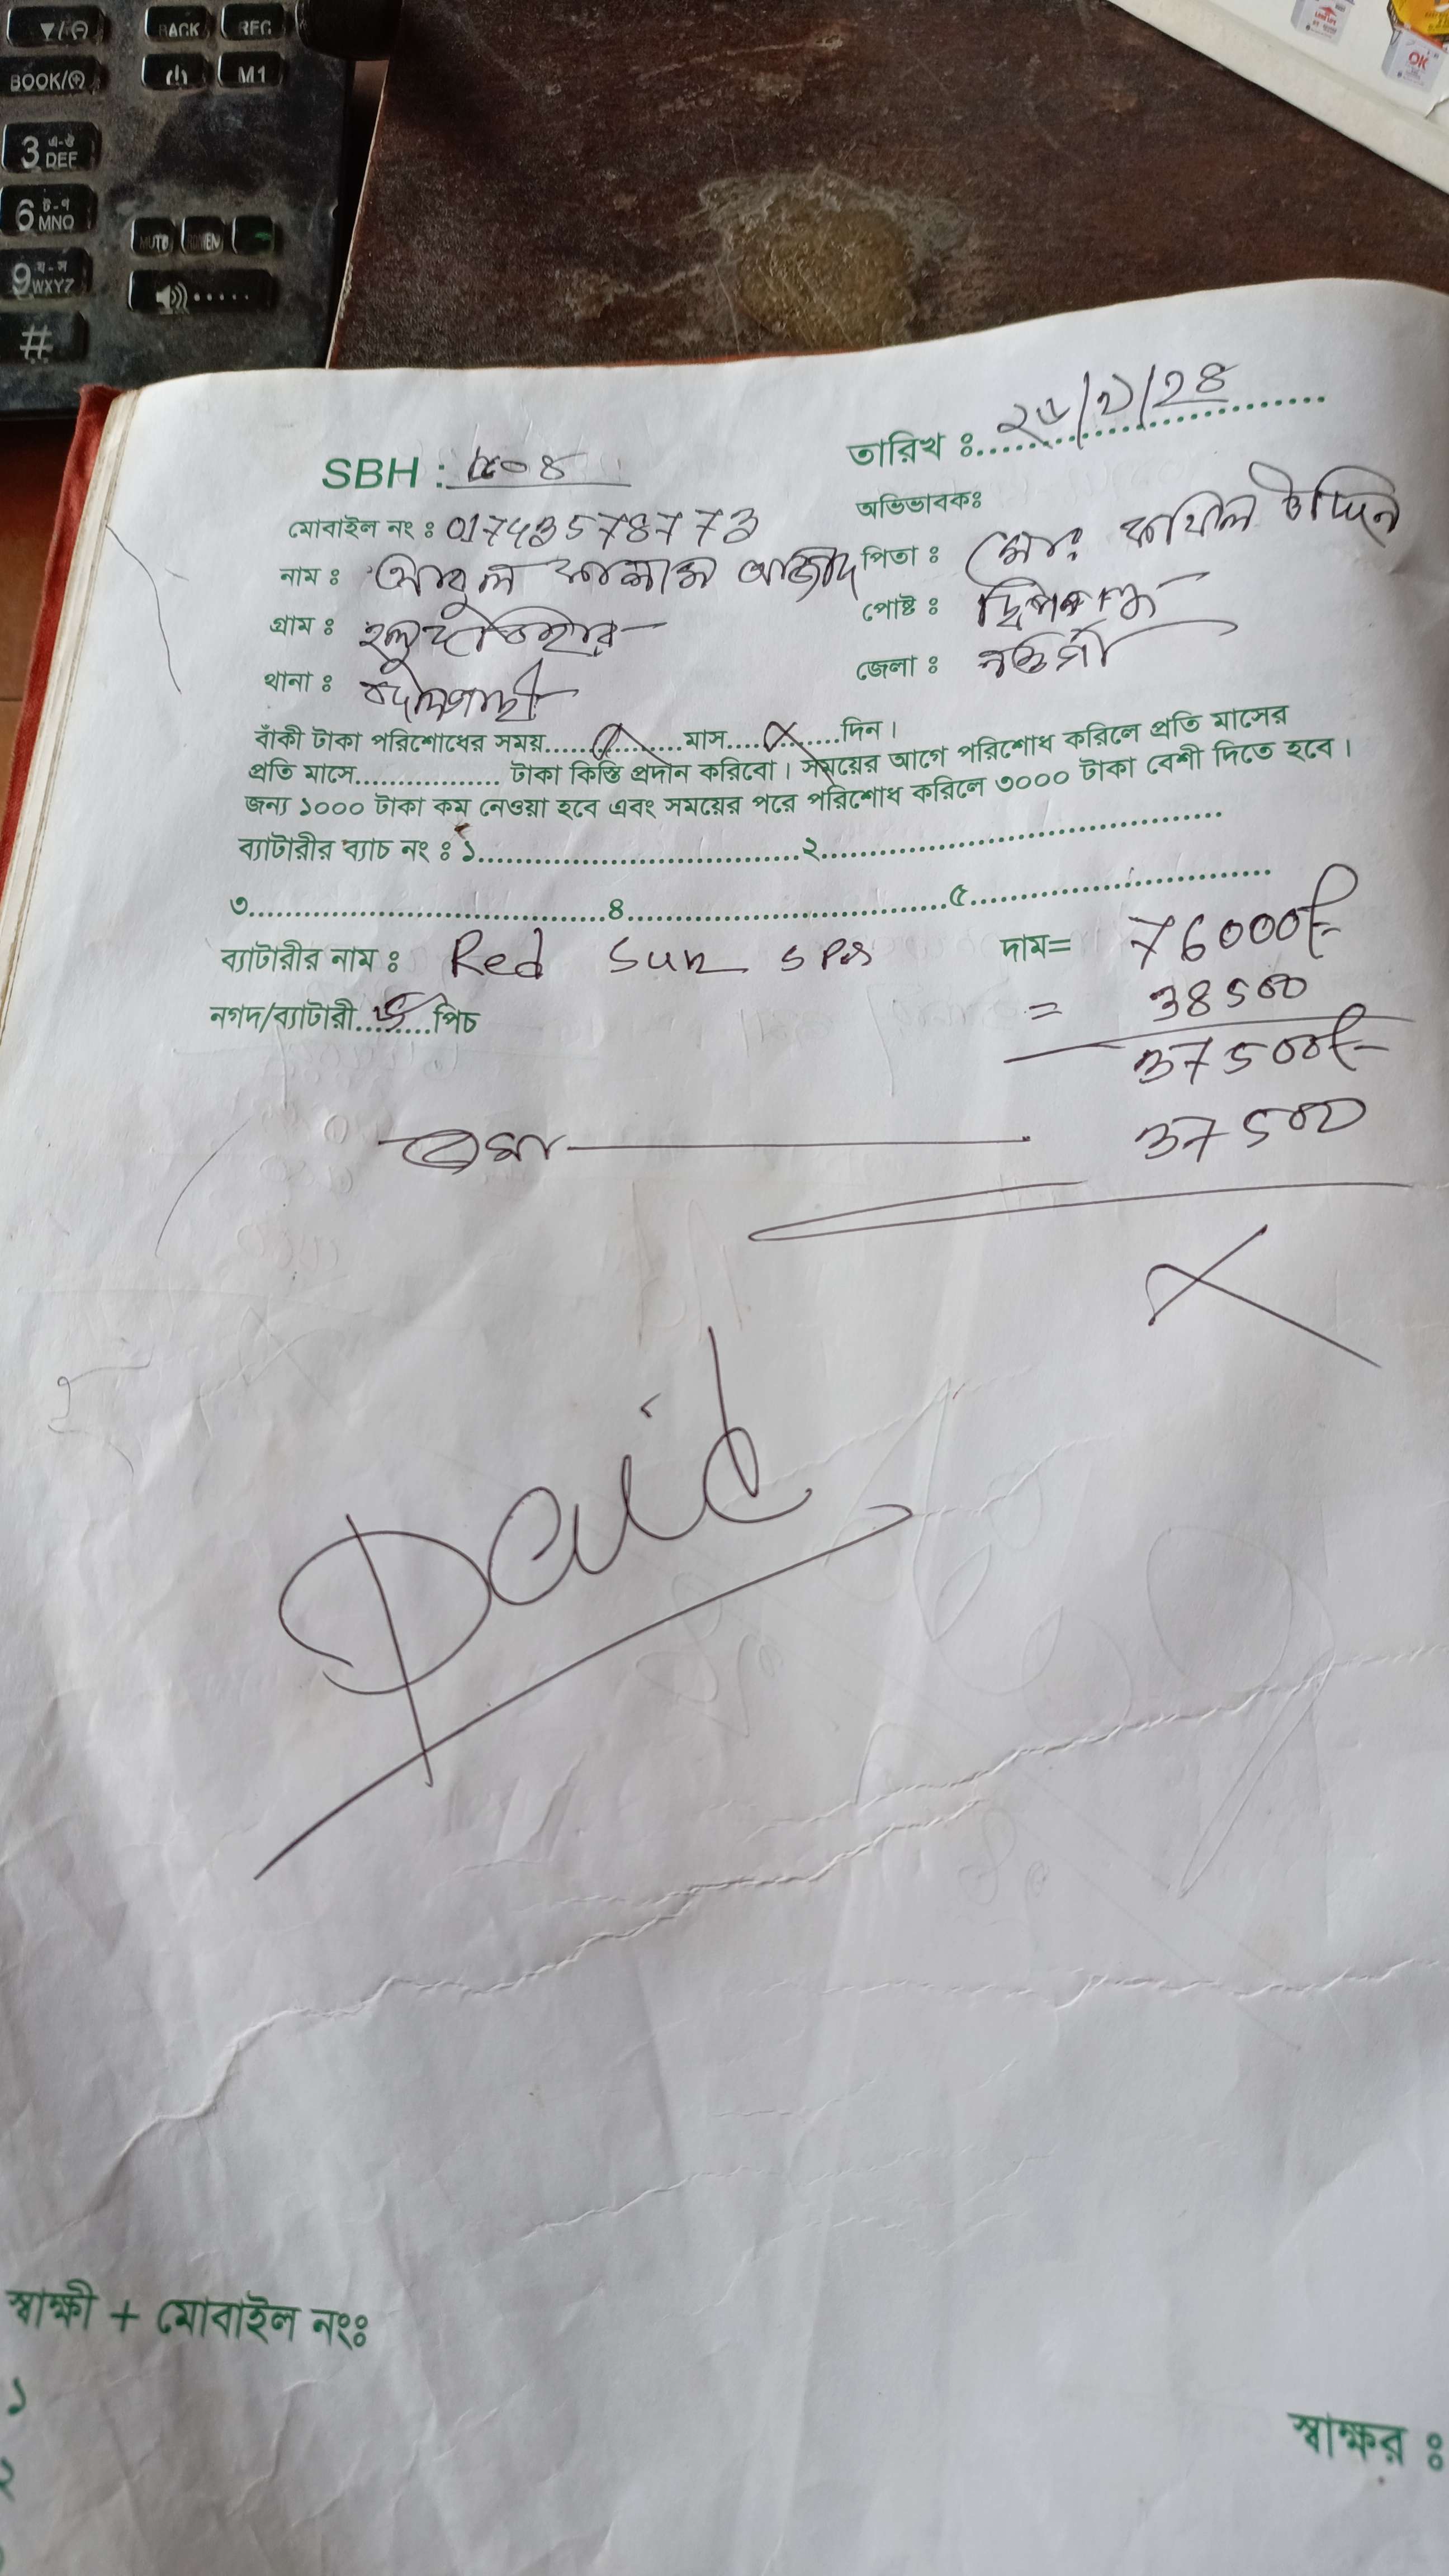 ▼/⊖ BACK REC
BOOK/⊕ M1
3 এ-ঔ DEF
6 ট-ণ MNO
MUTE
9 য-স WXYZ
#
OK
SBH :
তারিখ ঃ
মোবাইল নং ঃ 01743578773
অভিভাবকঃ
নাম ঃ আবুল কালাম আজাদ
পিতা ঃ মোঃ উদ্দিন
গ্রাম ঃ
পোষ্ট ঃ
থানা ঃ বদলগাছী
জেলা ঃ নওগাঁ
বাঁকী টাকা পরিশোধের সময়...............মাস...........দিন।
প্রতি মাসে................ টাকা কিস্তি প্রদান করিবো। সময়ের আগে পরিশোধ করিলে প্রতি মাসের
জন্য ১০০০ টাকা কম নেওয়া হবে এবং সময়ের পরে পরিশোধ করিলে ৩০০০ টাকা বেশী দিতে হবে।
ব্যাটারীর ব্যাচ নং ঃ ১...................................২............................................
৩.......................................৪...................................৫.................................
ব্যাটারীর নাম ঃ Red Sun 5 Pcs দাম= 76000/-
নগদ/ব্যাটারী.........পিচ = 38500
37500/-
জমা 37500
Paid
স্বাক্ষী + মোবাইল নংঃ
১
স্বাক্ষর ঃ
২